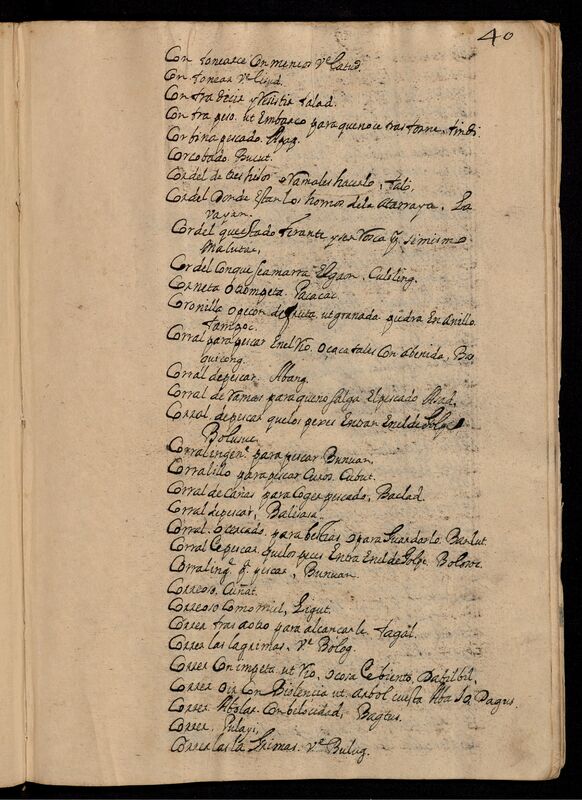 40
Contonearse Con meneos Vᵉ
Contonear Vᵉ
Contradecir y Resistir talad.
Contrapeso. ut Embarco para que no se trastorne, tindi.
Corbina pescado.
Corcobado. Bucut.
Cordel de tres hilos o Ramales hacerlo, talo,
Cordel Donde Estan los hornos de la Atarraya, La
vayan.
Cordel que estado tirante y se
Malutac,
Cordel Con que se amarra El gaon. Culiling.
Corneta o trompeta. Pacacac.
Coronilla o peçon de fruta. ut granada. piedra En Anillo.
Tampoc.
Corral para pescar En el Rio. o caçatales Con Abenida, Ba
Corral de pescar. Abang.
Corral de Ramas para que no salga El pescado
Corral de pescar que los peces Entran En el de Golpe
Corral ingenᵒ. para pescar Bunuan,
Corralillo para pescar Cubut.
Corral de Cañas para Coger pescado, Baclad.
Corral de pescar, Balsasa.
Corral. o cercado. para bestias o para Guardarlo. Baclut.
Corral de pescar. que los peces Entra En el de Golpe. Boloroc.
Corral ingᵒ. pᵃ. pescar, Bunuan.
Correoso. Cuñat.
Correoso Como miel, Ligut.
Correr tras otro para alcançarle tagal.
Correr las lagrimas. Vᵉ Bolog.
Correr Con impetu ut Rio. o cosa Dabilbil.
Correr o ir Con Biolencia ut. arbol cuesta Abaxo. Dagus.
Correr Abolar. Con belocidad, Bagtus.
Correr, Pulayi,
Correr las lagrimas. Vᵉ Bulug.